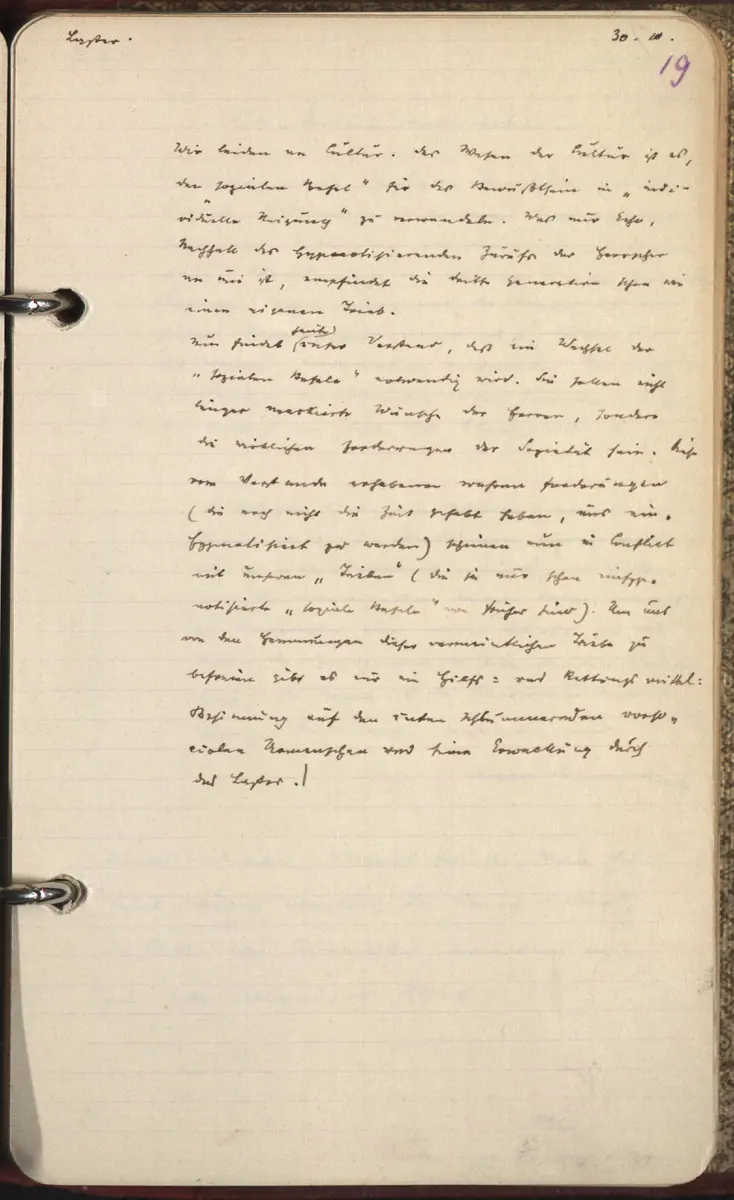 Laster.
30. III.
19
Wir leiden an Cultur. Das Wesen der Cultur ist es,
den „sozialen Befehl" für das Bewußtsein in „indi-
viduelle Neigung" zu verwandeln. Was nur Echo,
Nachhall des hypnotisierenden Zurufs der Herrscher
an uns ist, empfindet die dritte Generation schon wie
einen eigenen Trieb.
Nun findet heute unser Verstand, daß ein Wechsel der
„sozialen Befehle" notwendig wird. Sie sollen nicht
länger maskierte Wünsche der Herren, sondern
die wirklichen Forderungen der Sozietät sein. Diese
vom Verstande erhobenen wahren Forderungen
(die noch nicht die Zeit gehabt haben, uns ein-
hypnotisiert zu werden) scheinen nun in Conflict
mit unseren „Trieben" (die ja nur schon einhyp-
notisierte „soziale Befehle" von früher sind). Um uns
von den Hemmungen dieser vermeintlichen Triebe zu
befreien gibt es nur ein Hilfs= und Rettungsmittel:
Besinnung auf den unten schlummernden vorso-
cialen Urmenschen und seine Erweckung durch
das Laster.